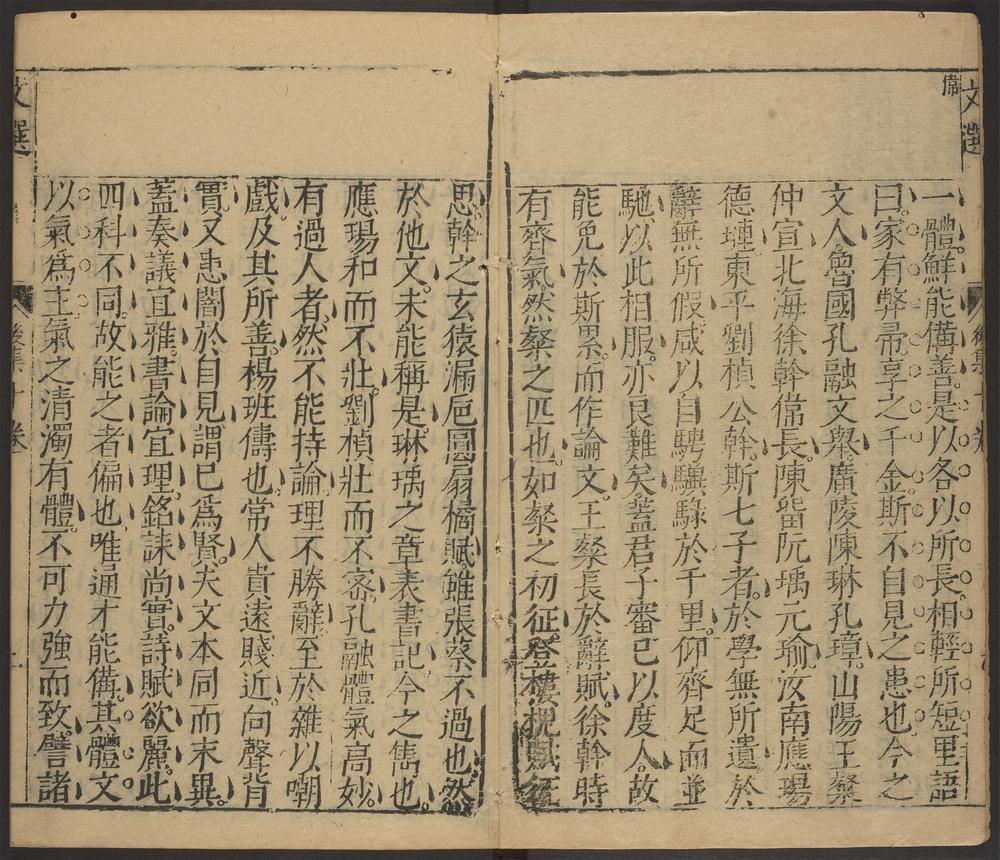 偉
文選
後集十卷
一體鮮能備善是以各以所長相輕所短里語
曰家有弊帚享之千金斯不自見之患也今之
文人魯國孔融文舉廣陵陳琳孔璋山陽王粲
仲宣北海徐幹偉長陳畱阮瑀元瑜汝南應瑒
德璉東平劉楨公幹斯七子者於學無所遺於
辭無所假咸以自騁驥騄於千里仰齊足而並
馳以此相服亦良難矣蓋君子審己以度人故
能免於斯累而作論文王粲長於辭賦徐幹時
有齊氣然粲之匹也如粲之初征登樓槐賦征
思幹之玄猿漏巵圓扇橘賦雖張蔡不過也然
於他文未能稱是琳瑀之章表書記今之雋也
應瑒和而不壯劉楨壯而不密孔融體氣高妙
有過人者然不能持論理不勝辭至於雜以嘲
戲及其所善楊班儔也常人貴遠賤近向聲背
實又患闇於自見謂己爲賢夫文本同而末異
蓋奏議宜雅書論宜理銘誄尚實詩賦欲麗此
四科不同故能之者偏也唯通才能備其體文
以氣爲主氣之清濁有體不可力強而致譬諸
文選
後集十卷
二